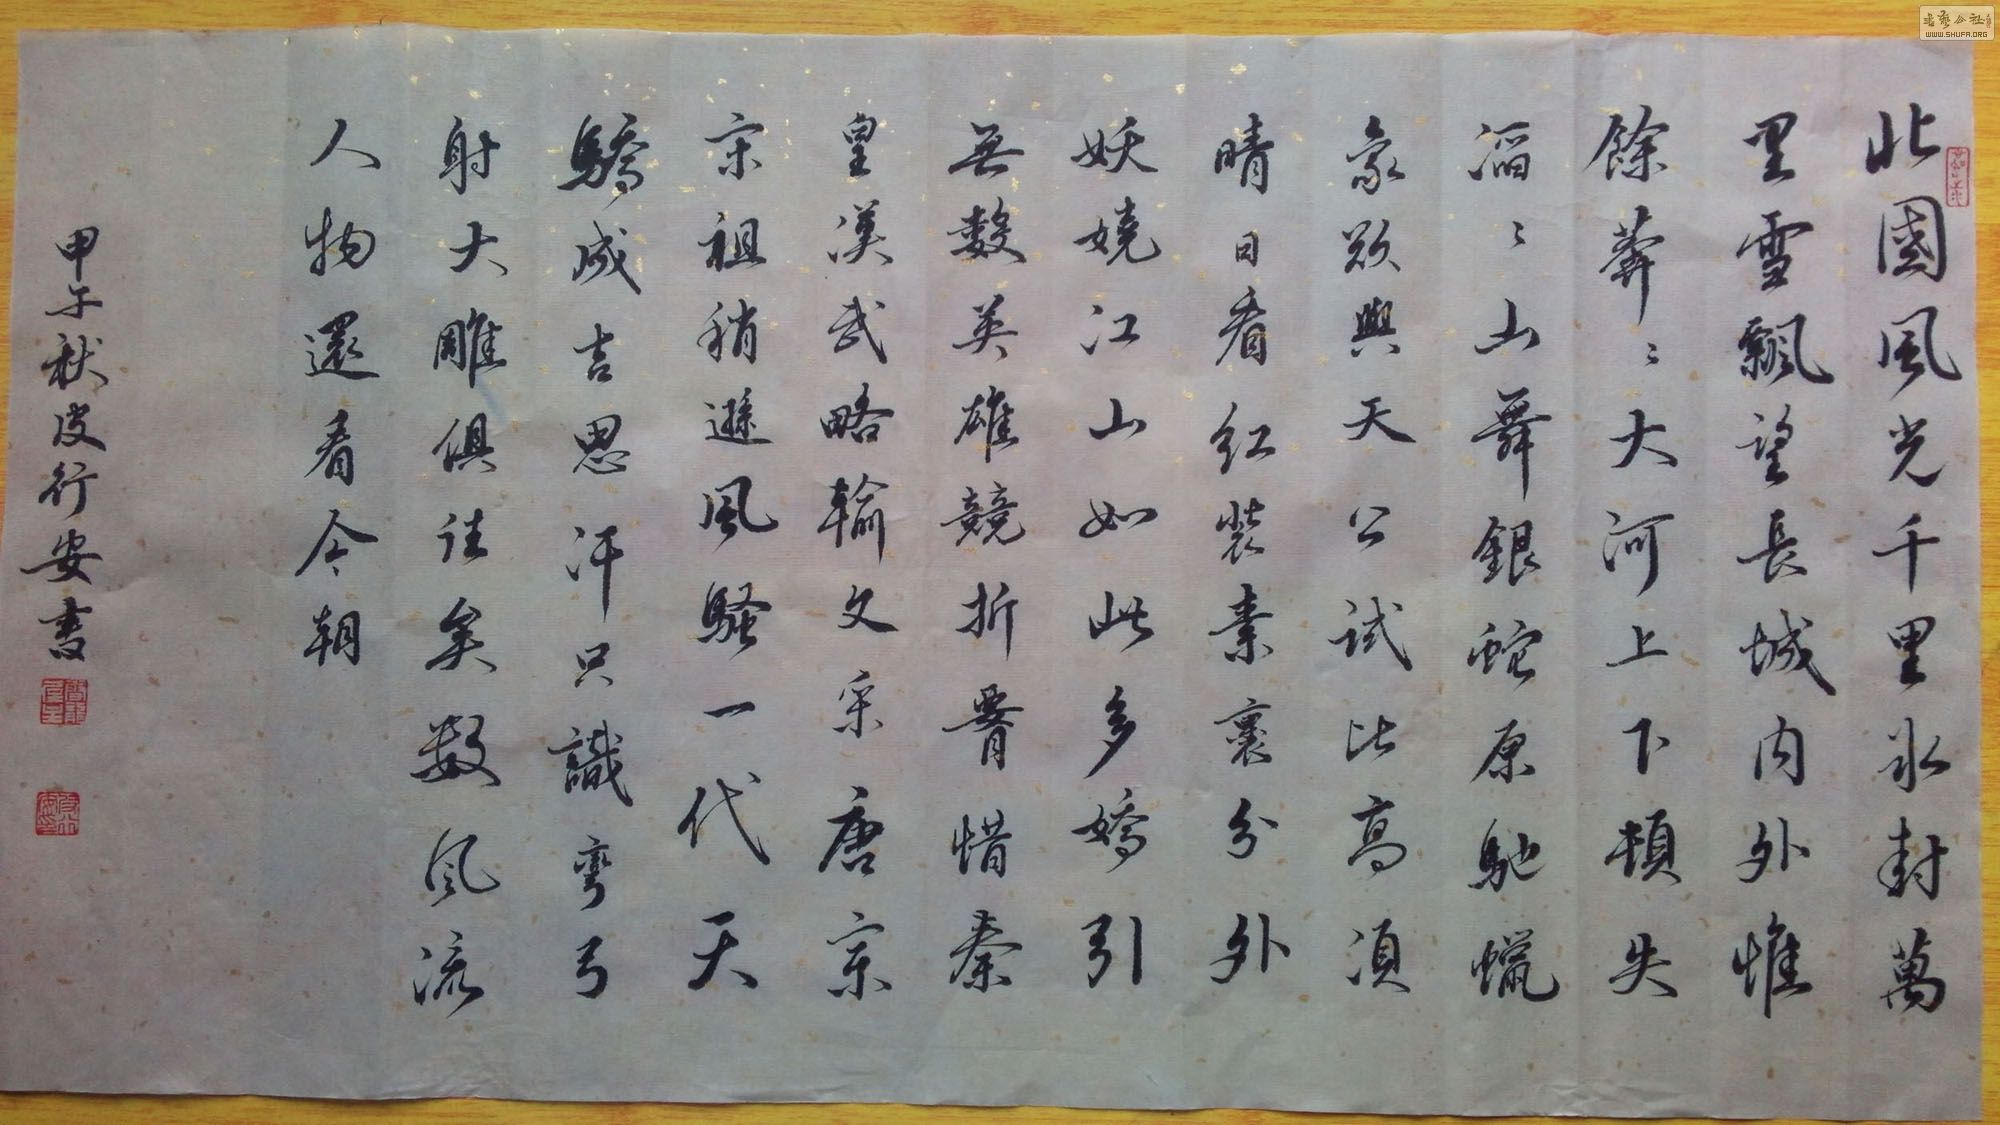 北國風光千里氷封萬
里雪飄望長城内外惟
餘莽〻大河上下頓失
滔〻山舞銀蛇原馳蠟
象欲與天公試比高須
晴日看紅裝素裹分外
妖嬈江山如此多嬌引
無數英雄競折腰惜秦
皇漢武略輸文采唐宗
宋祖稍遜風騷一代天
驕成吉思汗只識彎弓
射大雕俱往矣数风流
人物還看今朝
甲午秋皮行安書
書藝公社
WWW.SHUFA.ORG